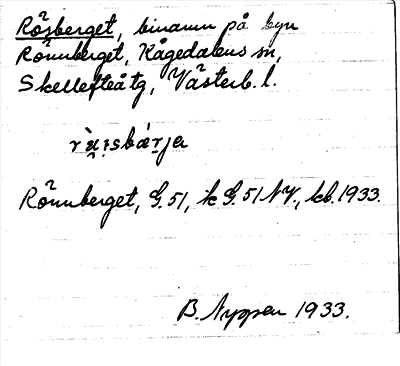 Rösberget, binamn på byn
Rönnberget, Kågedalens sn,
Skellefteå tg, Västerb. l.
Rönnberget, G. 51, k G. 51 NV., kb. 1933.
B. Nygren 1933.